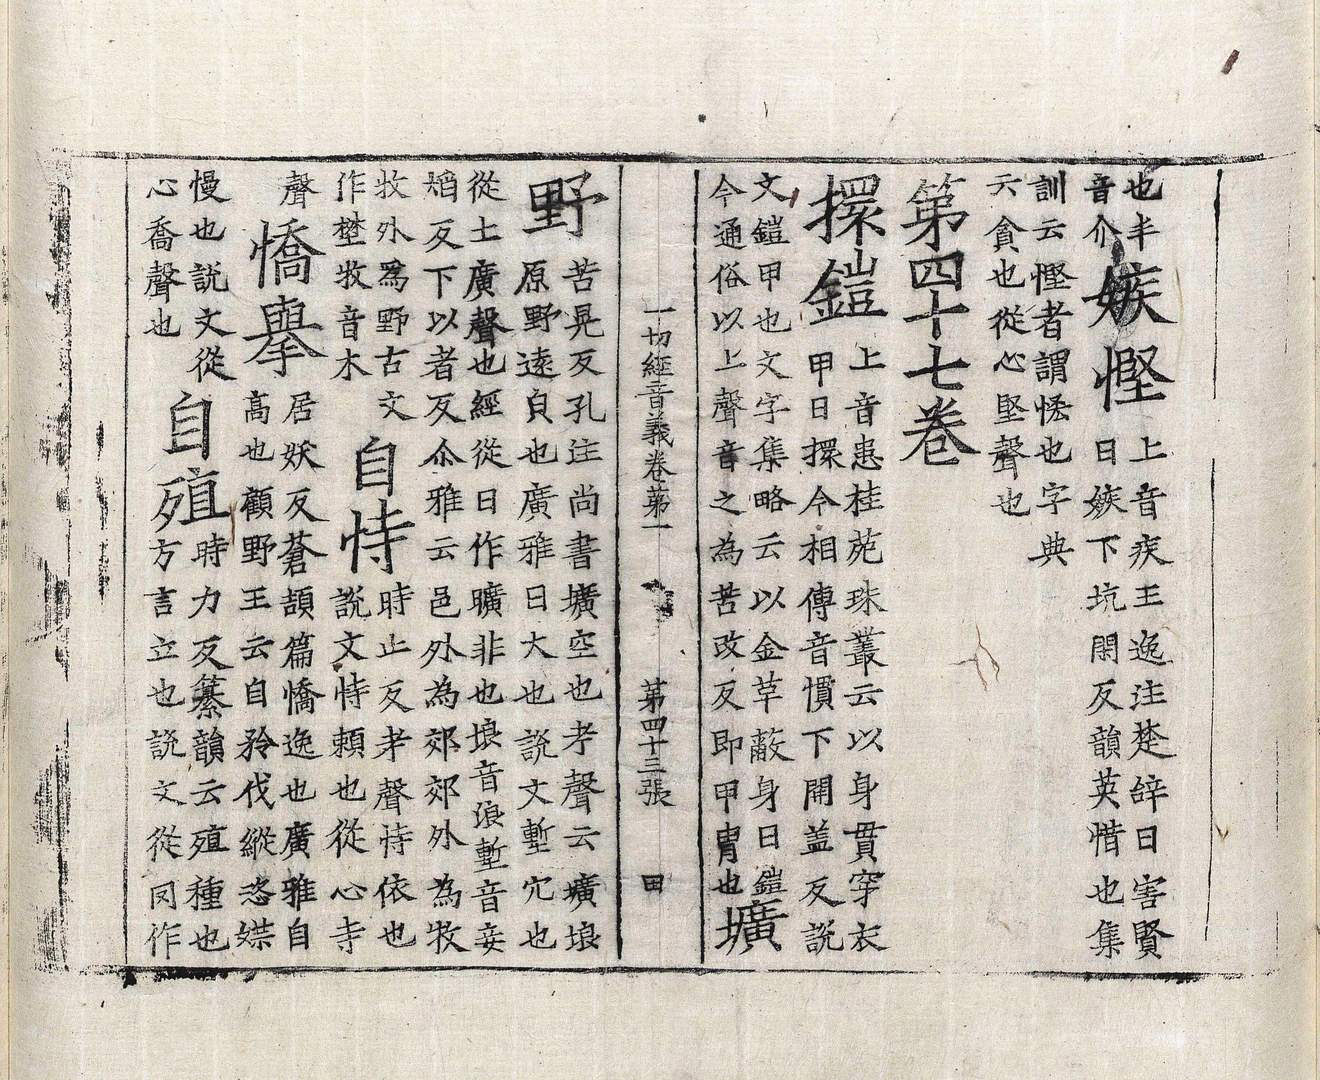 也半
音介
嫉慳
上音疾王逸注楚辝曰害賢
曰嫉下坑閑反韻英惜也集
訓云慳者謂悋也字典
亣貪也從心堅聲也
第四十七卷
擐鎧
上音患桂苑珠叢云以身貫穿衣
甲曰擐今相傳音慣下開盖反說
文鎧甲也文字集略云以金草蔽身曰鎧
今通俗以上聲音之為苦改反即甲冑也
壙
一切經音義卷苐一 第四十三張 田
野
苦晃反孔注尚書壙空也考聲云壙埌
原野遠皃也廣雅曰大也說文塹穴也
從土廣聲也經從日作曠非也埌音浪塹音妾
焰反下以者反尒雅云邑外為郊郊外為牧
牧外爲野古文
作埜牧音木
自恃
時止反考聲恃依也
說文恃頼也從心寺
聲
憍舉
居妖反蒼頡篇憍逸也廣雅自
高也顧野王云自矜伐縱恣媟
慢也說文從
心喬聲也
自殖
時力反纂韻云殖種也
方言立也說文從作